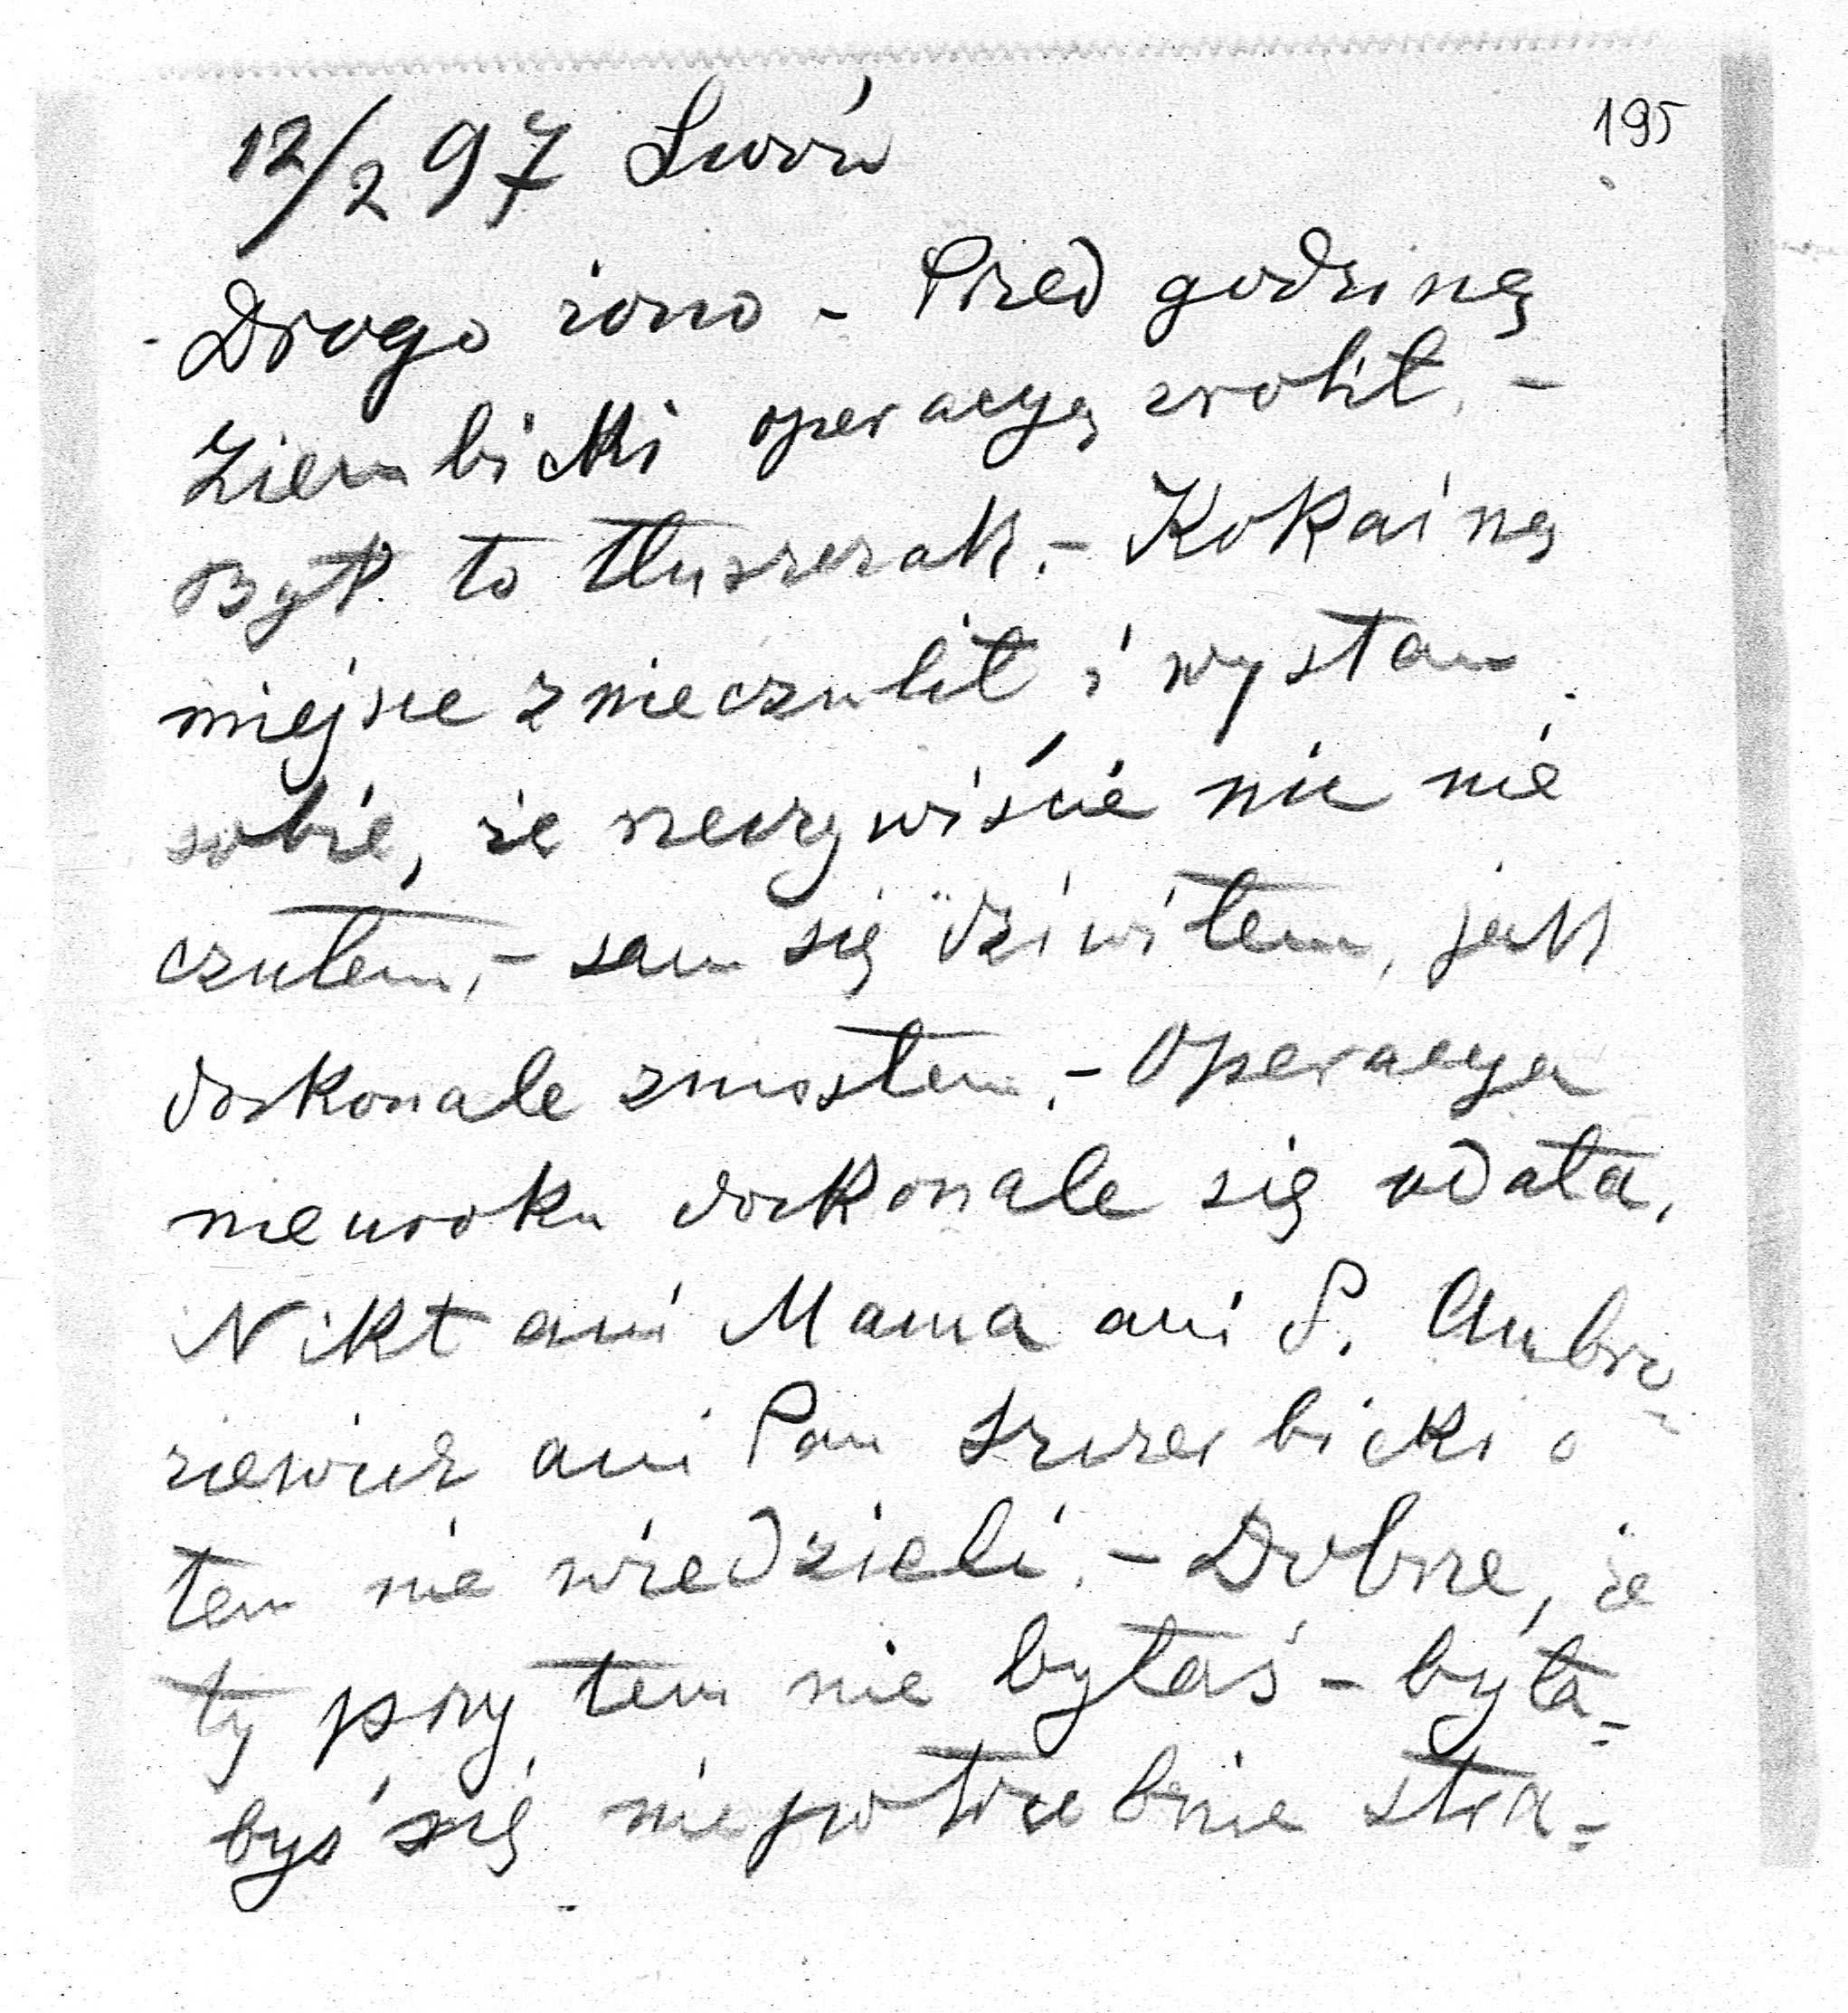 195
12/2 97 Lwów
Drogo żono - Przed godziną
Ziembicki operacyę zrobił. -
Był to tłuszczak. - Kokainą
miejsce znieczulił i wystaw
sobie, że rzeczywiście nic nie
czułem, - sam się dziwiłem, jak
doskonale zniosłem. - Operacya
nieuroku doskonale się udała.
Nikt ani Mama ani P. Ambro-
ziewicz ani Pan Szczerbicki o
tem nie wiedzieli. - Dobrze, że
ty przy tem nie byłaś - była-
byś się niepotrzebnie stra-